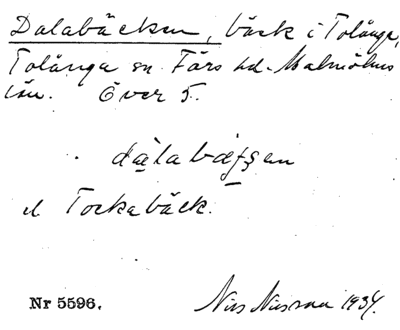 Dalabäcken, bäck i Tolånga,
Tolånga sn Färs hd. Malmöhus
län. Över 5.
dàlabæʃʂen
el Tockabäck.
Nr 5596. Nils Nilsson 1934.